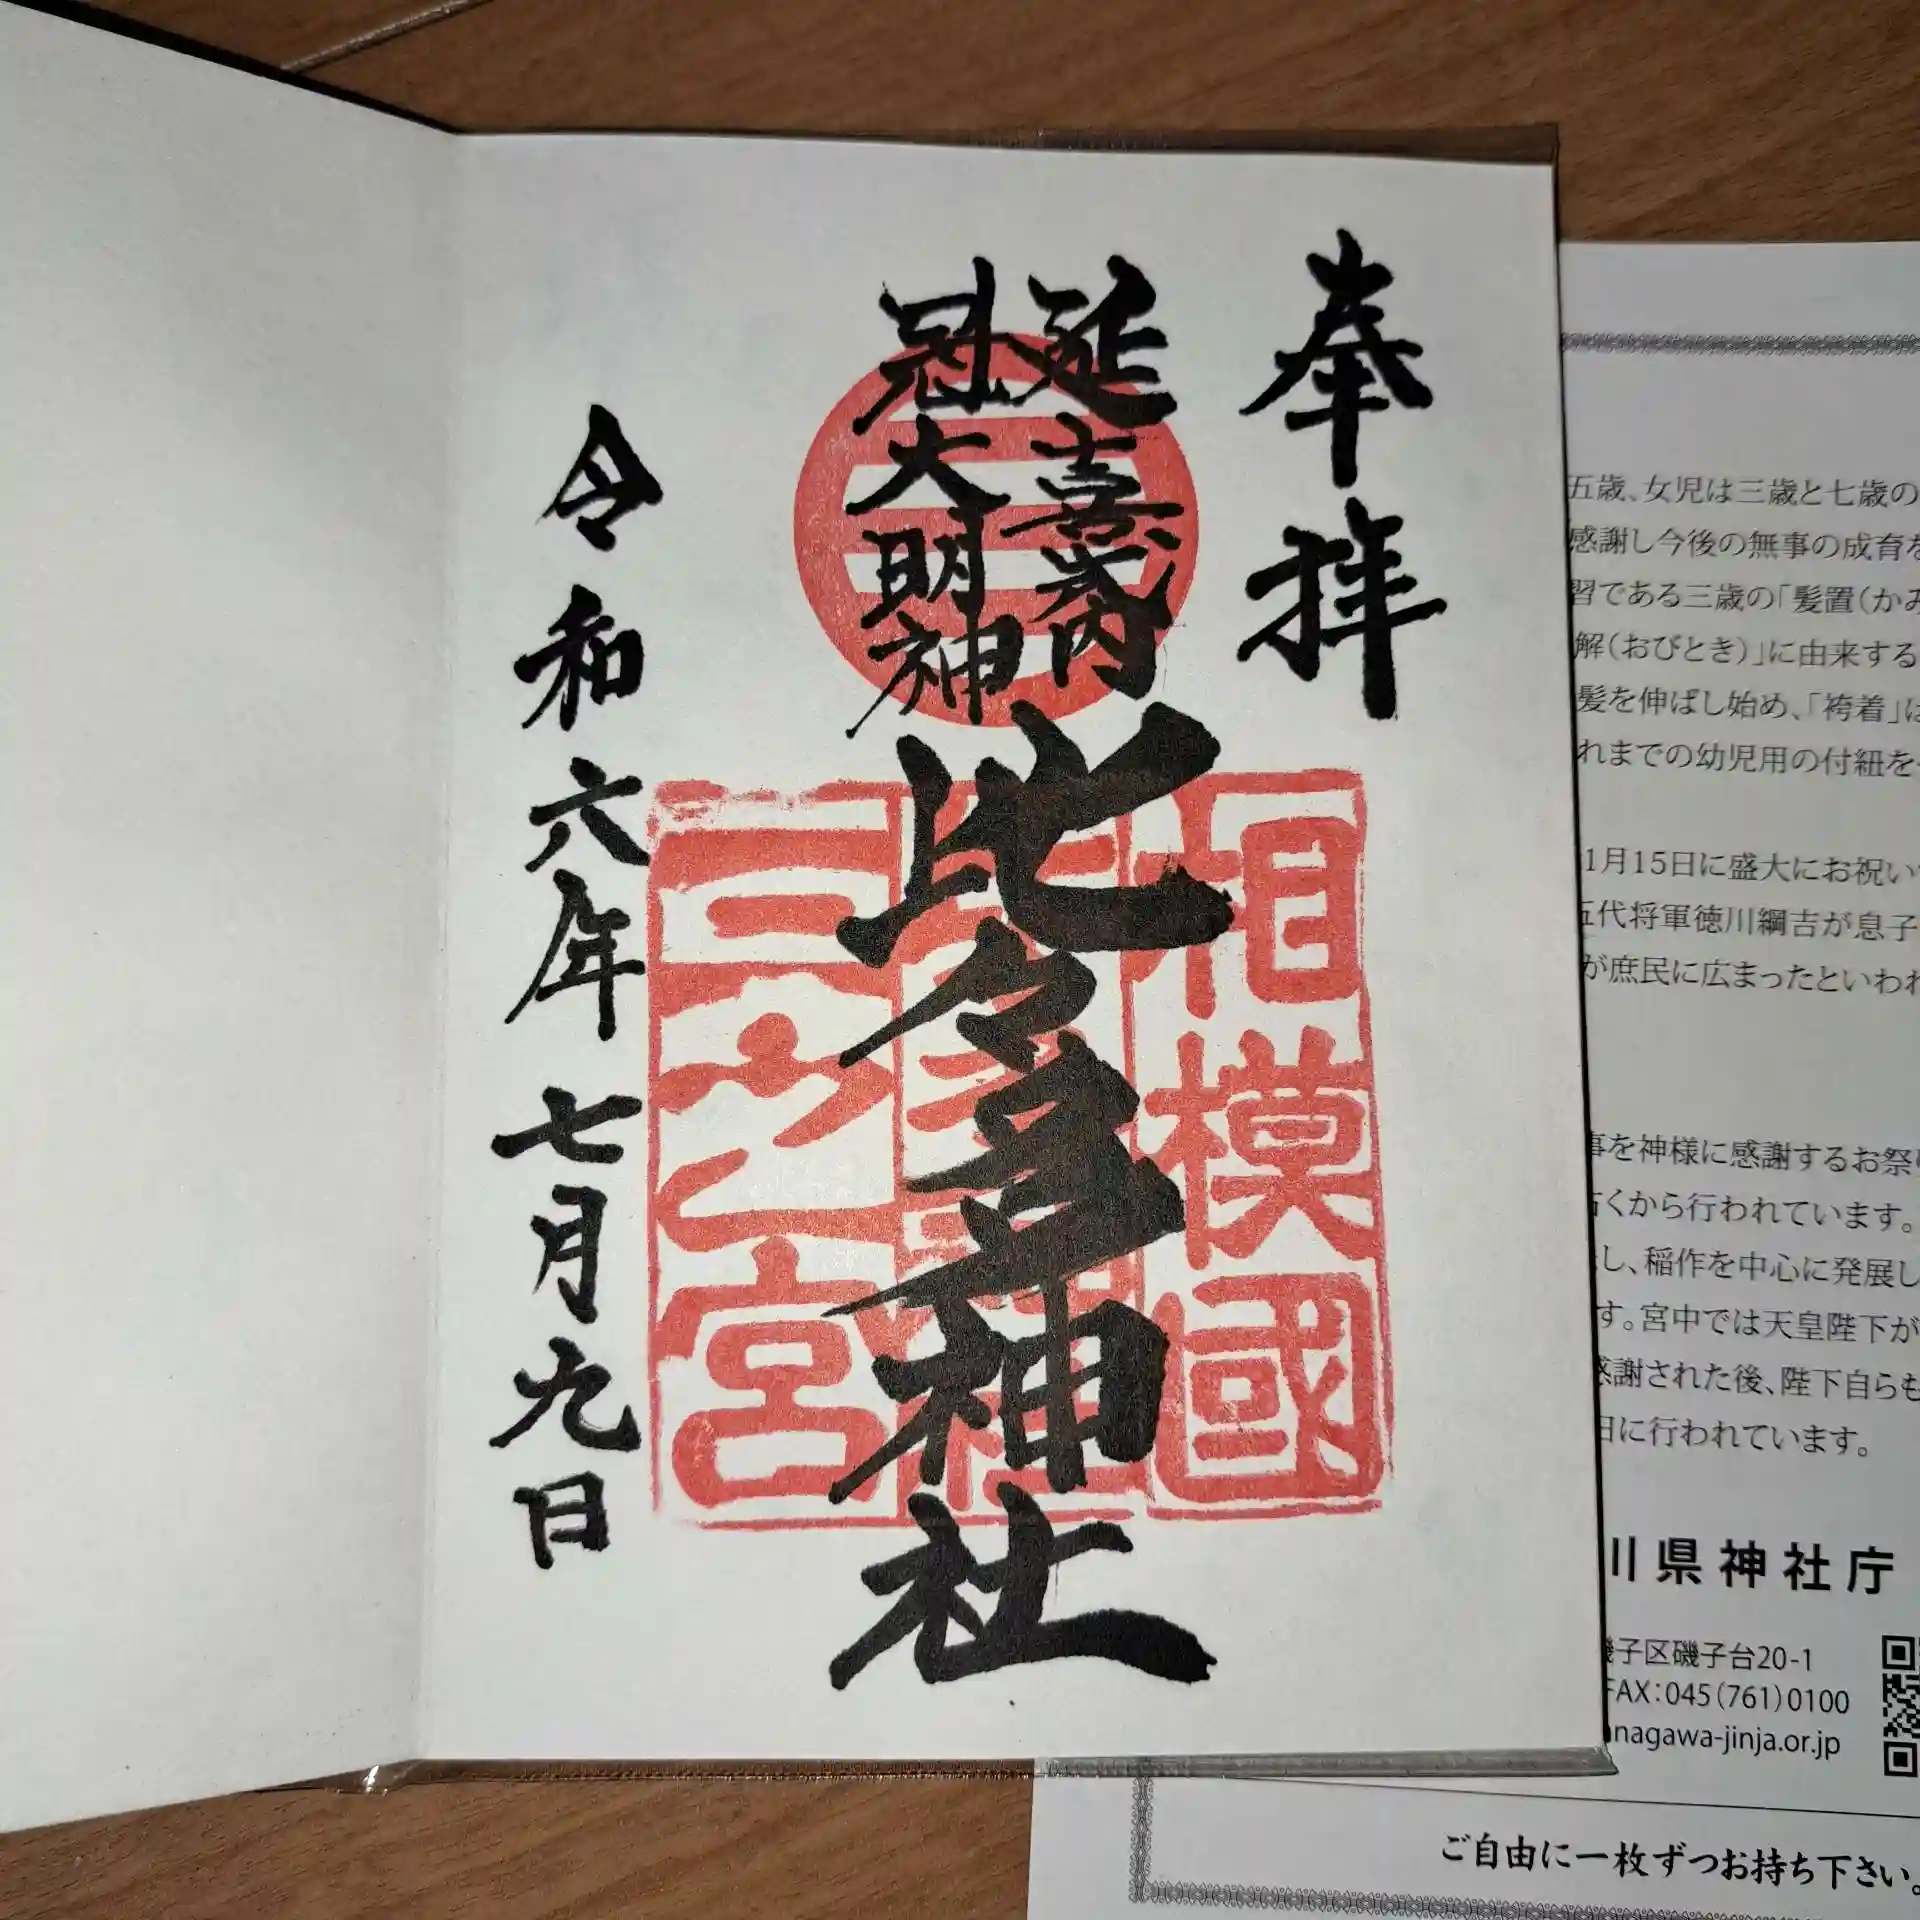 奉拝
延喜式内
冠大明神
比々多神社
令和六年七月九日
相模國
三之宮
五歳、女児は三歳と七歳の
感謝し今後の無事の成育を
習である三歳の「髪置(かみ
解(おびとき)」に由来する
髪を伸ばし始め、「袴着」は
れまでの幼児用の付紐を
1月15日に盛大にお祝い
五代将軍徳川綱吉が息子
が庶民に広まったといわれ
事を神様に感謝するお祭り
古くから行われています。
し、稲作を中心に発展し
す。宮中では天皇陛下が
感謝された後、陛下自らも
日に行われています。
川県神社庁
磯子区磯子台20-1
FAX:045(761)0100
anagawa-jinja.or.jp
ご自由に一枚ずつお持ち下さい。